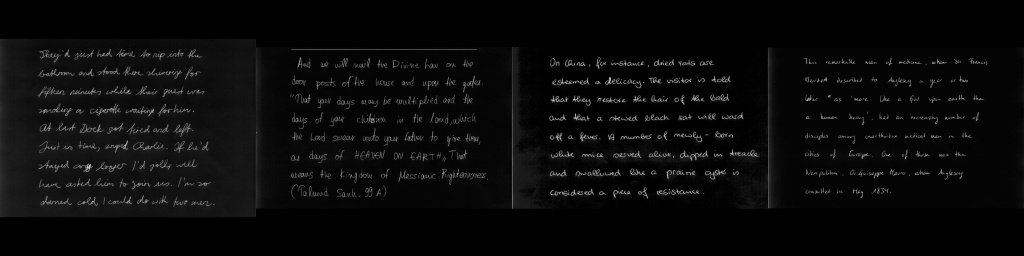 They'd just had time to nip into the
bathroom and stood there shivering for
fifteen minutes while their guest was
smoking a cigarette waiting for him.
At last Dock got tired and left.
Just in time, Charlie. If he'd
stayed any longer I'd jolly well
have asked him to join us. I'm so
damned cold, I could do with two men.
And we will nail the Divine law on the
door posts of the house and upon the gates.
"That your days may be multiplied and the
days of your children in the land, which
the Lord swear unto your father to give them,
as days of HEAVEN ON EARTH". That
means the Kingdom of Messianic Righteousness.
(Talmud Sanh. 99 A)
On China, for instance, dried rats are
esteemed a delicacy. The visitor is told
that they restore the hair of the bald
and that a stewed black cat will ward
off a fever. A number of newly-born
white mice served alive, dipped in treacle
and swallowed like a prairie oyster is
considered a piece of resistance.
This remarkable man of medicine, whom Sir Francis
Burdett described to Anglesey a year or two
later "as 'more like a God upon earth than
a human being', had an increasing number of
disciples among unorthodox medical men in the
cities of Europe. One of these was the
Neapolitan, Dr Giuseppe Mauro, whom Anglesey
consulted in May 1834.